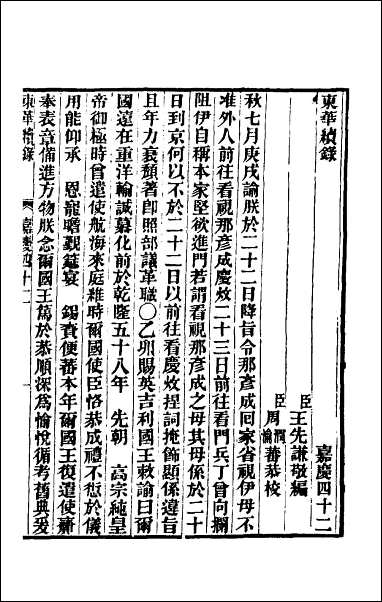 東華續錄 嘉慶四十二
臣王先謙敬編
臣周潤蕃恭校
秋七月庚戌諭朕於二十二日降旨令那彥成回家省視伊母不
准外人前往看視那彥成慶炆二十三日前往看門兵丁曾向攔
阻伊自稱本家堅欲進門若謂看視那彥成之母其母係於二十
日到京何以不於二十二日以前往看慶炆捏詞掩飾顯係違旨
且年力衰頹著卽照部議革職〇乙卯賜英吉利國王敕諭曰爾
國遠在重洋輸誠慕化前於乾隆五十八年 先朝 高宗純皇
帝御極時曾遣使航海來庭維時爾國使臣恪恭成禮不愆於儀
用能仰承 恩寵瞻覲筵宴 錫賚便蕃本年爾國王復遣使齎
奉表章備進方物朕念爾國王篤於恭順深爲愉悅循考舊典爰
東華續錄 嘉慶四十二 一